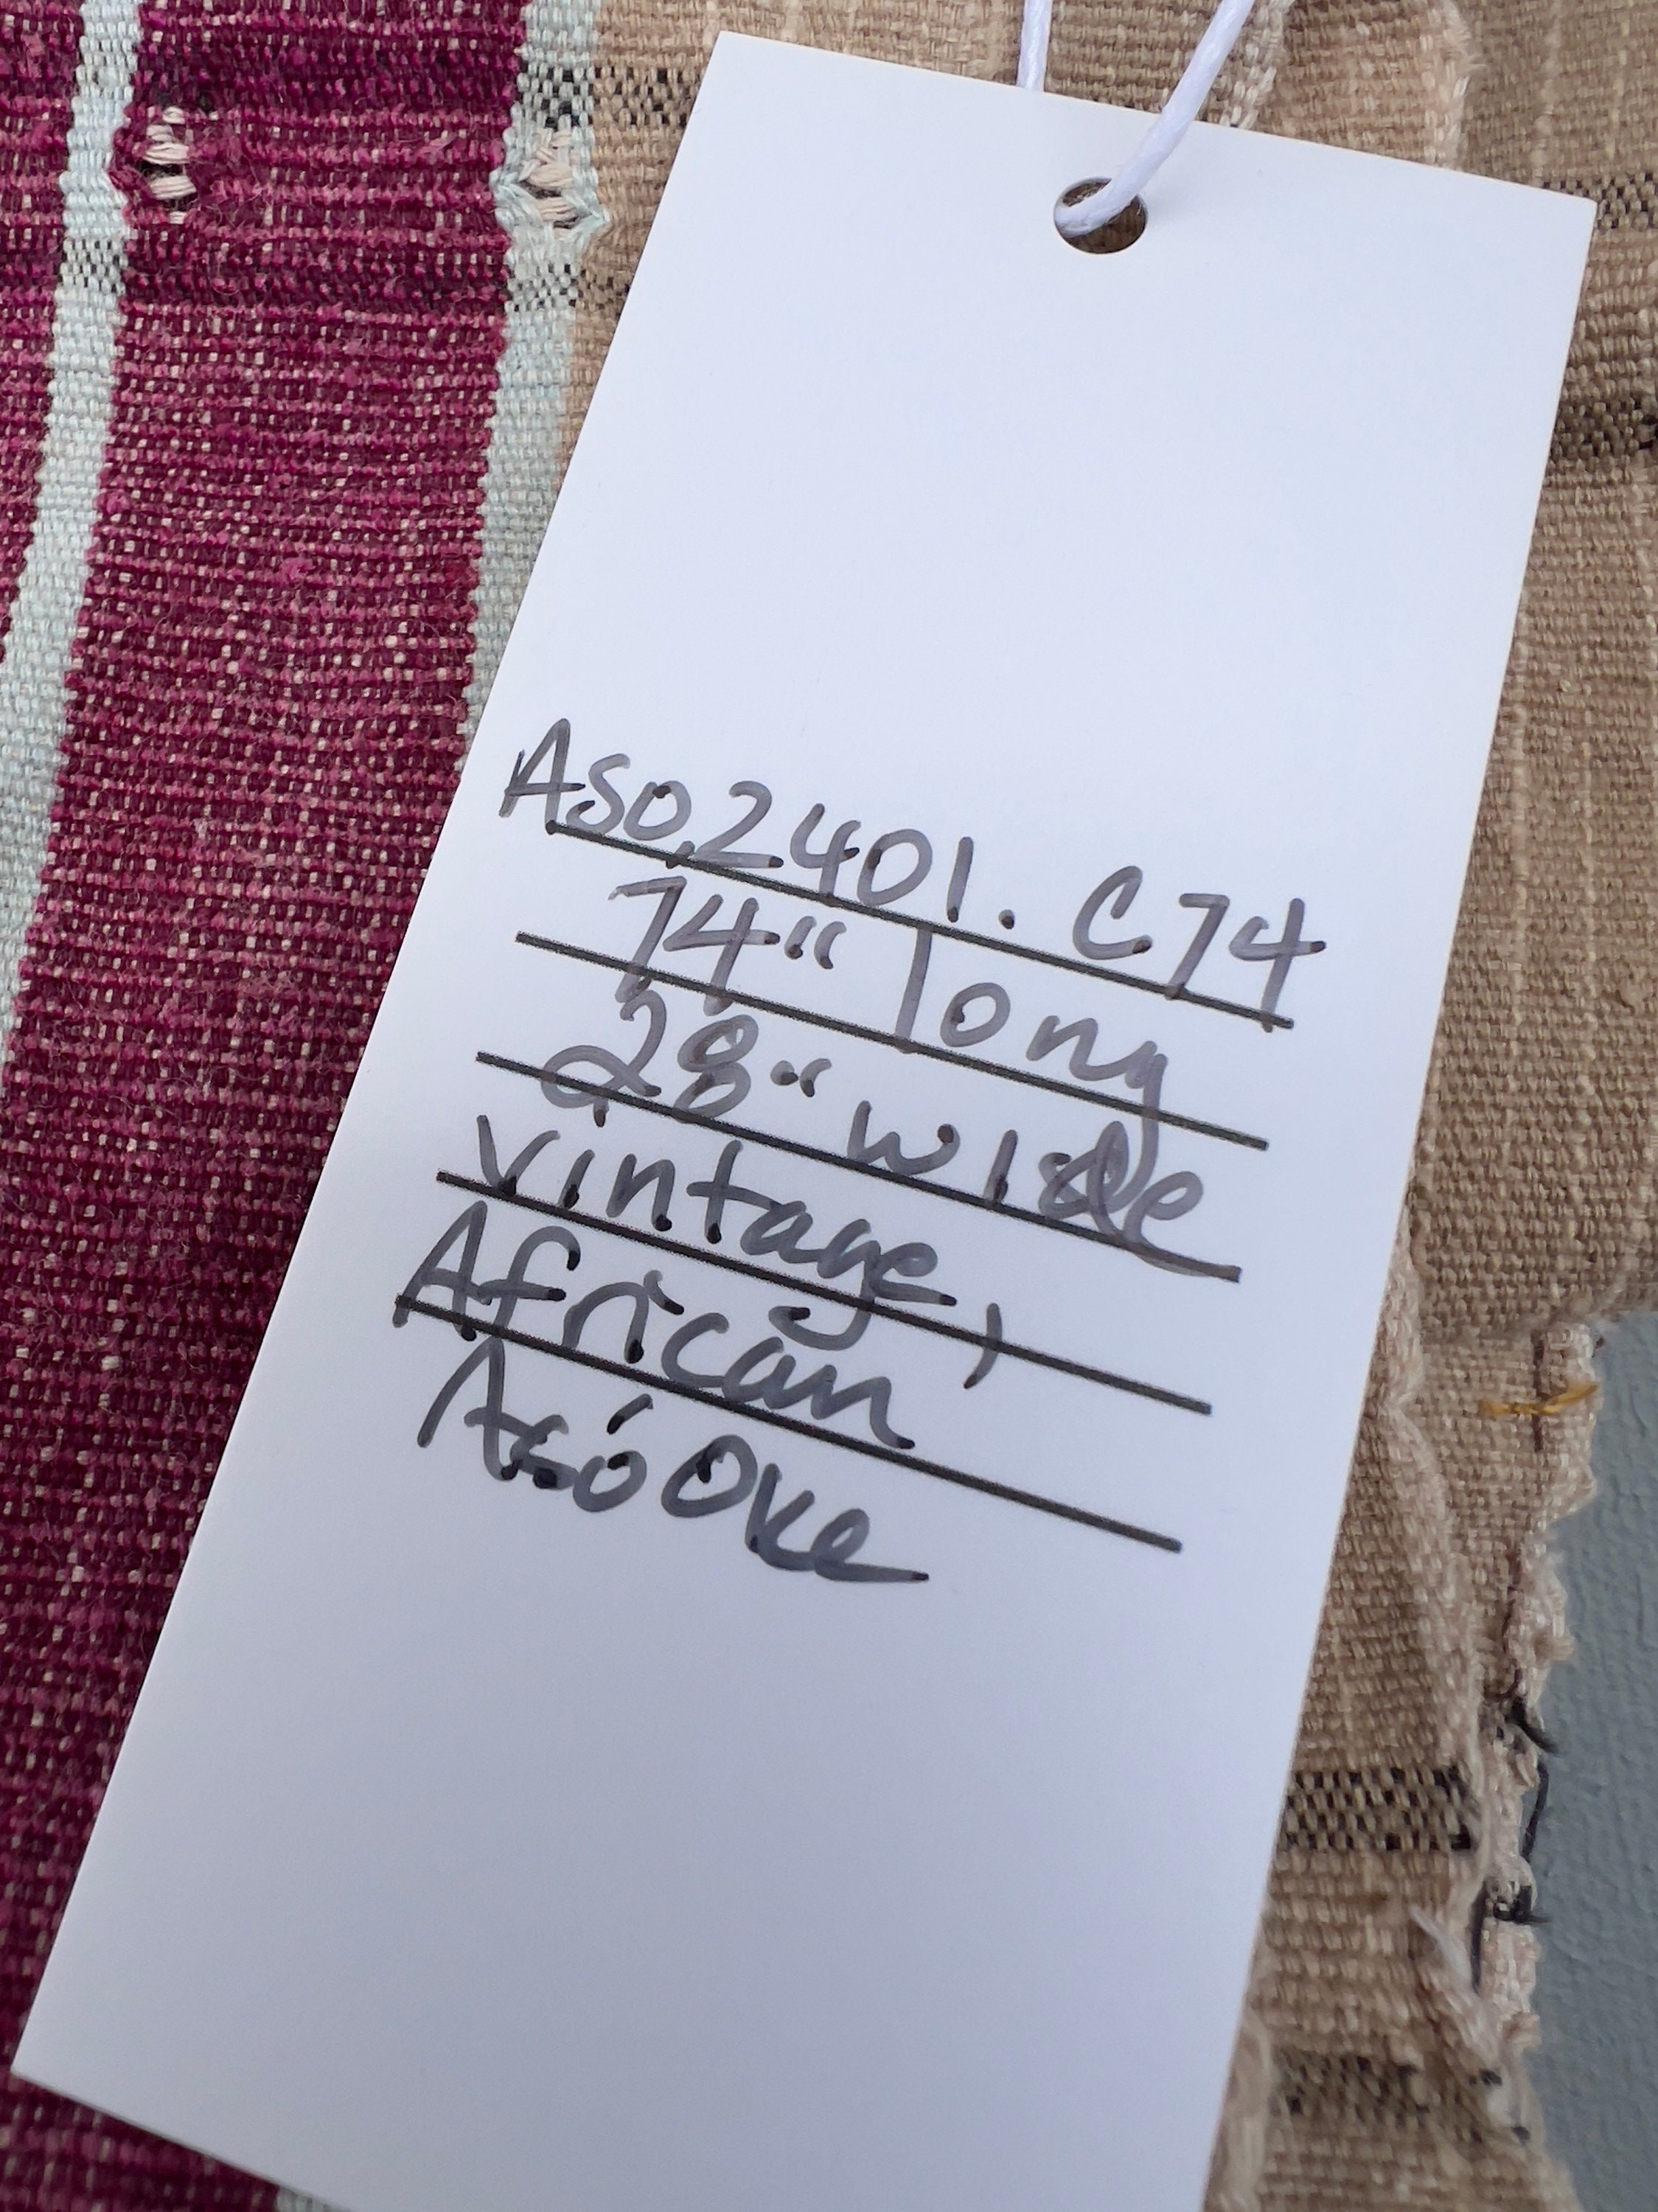 Aso.2401. C74
74" long
28" wide
vintage,
African
Asó Oke